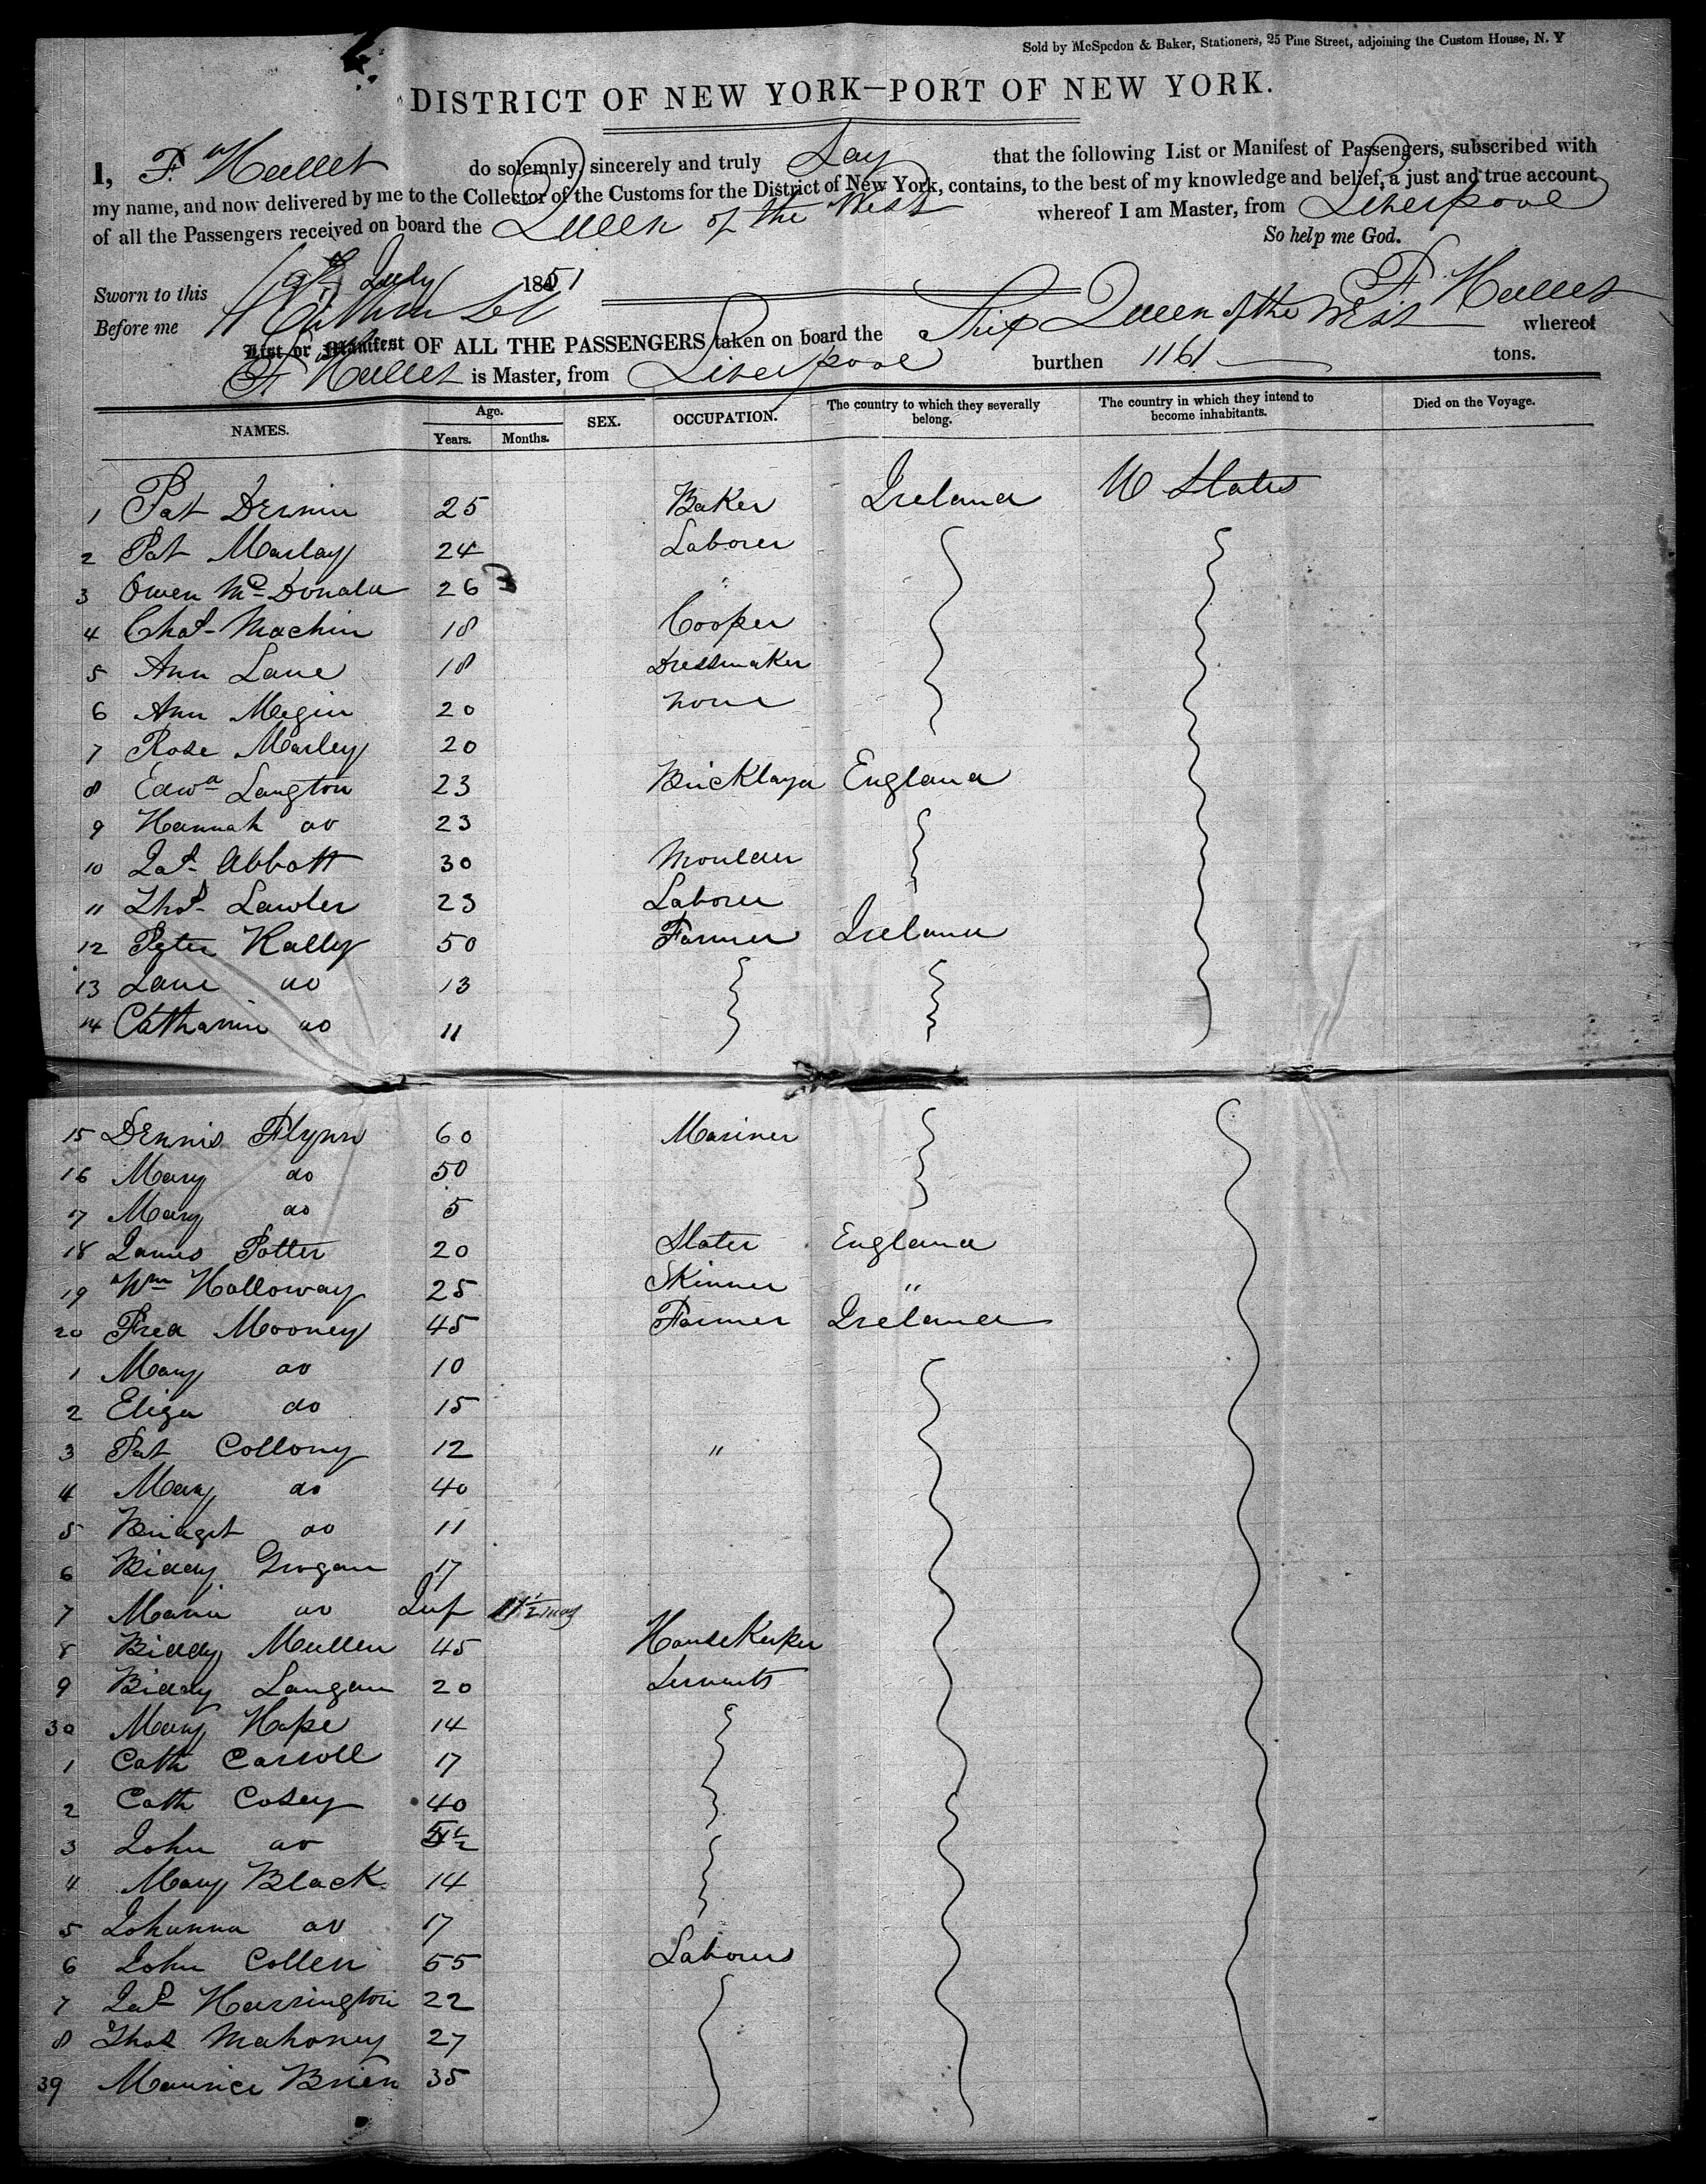 Sold by McSpedon & Baker, Stationers, 25 Pine Street, adjoining the Custom House, N. Y
DISTRICT OF NEW YORK—PORT OF NEW YORK.
I, F. Hallet do solemnly, sincerely and truly Say that the following List or Manifest of Passengers, subscribed with
my name, and now delivered by me to the Collector of the Customs for the District of New York, contains, to the best of my knowledge and belief, a just and true account
of all the Passengers received on board the Queen of the West whereof I am Master, from Liverpool
So help me God.
Sworn to this 19th July 1851
Before me F Hallet
List or Manifest OF ALL THE PASSENGERS taken on board the Ship Queen of the West whereof
F Hallet is Master, from Liverpool burthen 1161 tons.
NAMES. Age. Years. Months. SEX. OCCUPATION. The country to which they severally belong. The country in which they intend to become inhabitants. Died on the Voyage.
1 Pat Dermin 25 Baker Ireland U States
2 Pat Marlay 24 Laborer
3 Owen McDonald 26 "
4 Chas Machin 18 Cooper
5 Ann Lane 18 Dressmaker
6 Ann Megin 20 none
7 Rose Marley 20
8 Edwd Langton 23 Bricklayer England
9 Hannah do 23
10 Jas Abbott 30 Moulder
11 Thos Lawler 23 Laborer
12 Peter Kally 50 Farmer Ireland
13 Jane do 13
14 Catharine do 11
15 Dennis Flynn 60 Mariner
16 Mary do 50
7 Mary do 5
18 James Potter 20 Slater England
19 Wm Halloway 25 Skinner "
20 Fred Mooney 45 Farmer Ireland
1 Mary do 10
2 Eliza do 15
3 Pat Collony 12 "
4 Mary do 40
5 Bridget do 11
6 Biddy Grogan 17
7 Maria do Inf mos
8 Biddy Mullen 45 HouseKeeper
9 Biddy Langan 20 Servants
30 Mary Hope 14
1 Cath Carroll 17
2 Cath Casey 40
3 John do
4 Mary Black 14
5 Johanna do 17
6 John Collen 55 Laborers
7 Jas Harrington 22
8 Thos Mahoney 27
39 Maurice Brien 35